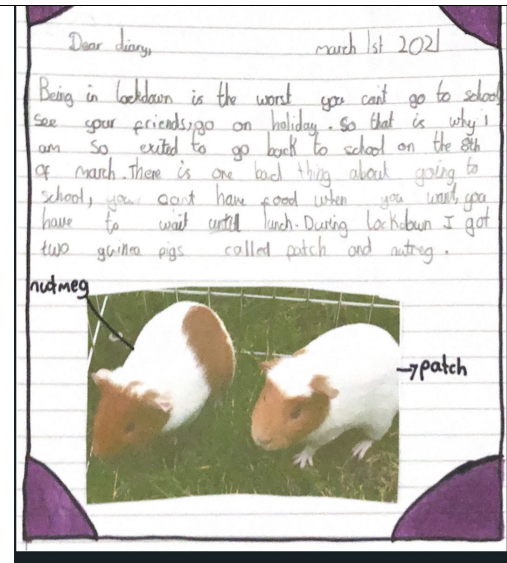 Dear diary, march 1st 2021
Being in lockdown is the worst you cant go to school
see your friends, go on holiday. So that is why i
am so exited to go back to school on the 8th
of march. There is one bad thing about going to
school, you cant have food when you want, you
have to wait until lunch. During lockdown I got
two guinea pigs called patch and nutmeg.
nutmeg
patch